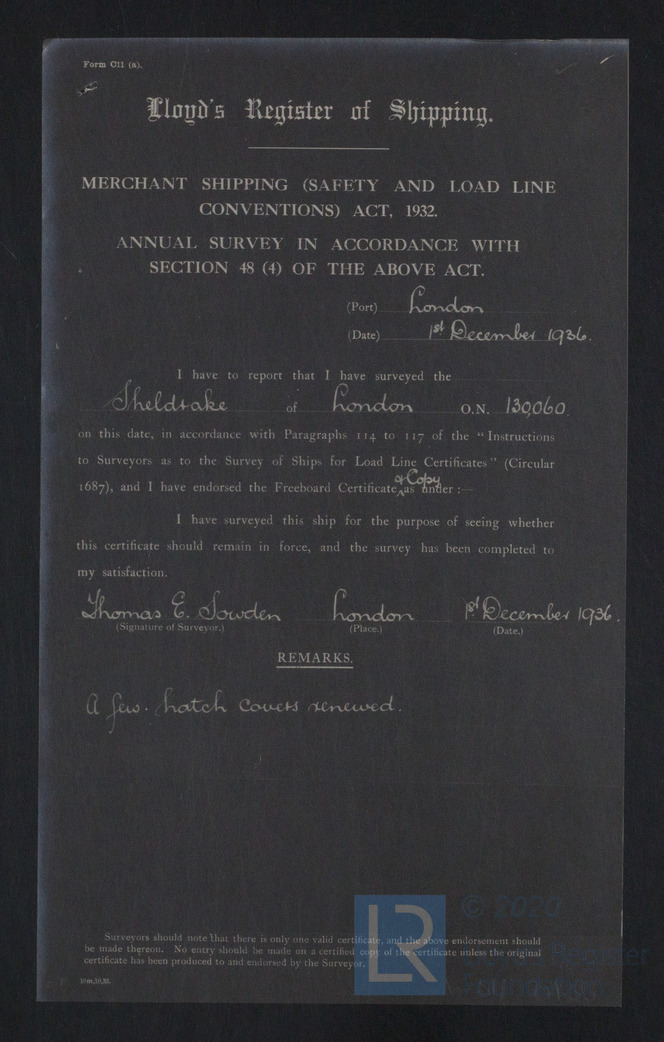 Form C11 (a).
Lloyd's Register of Shipping.
MERCHANT SHIPPING (SAFETY AND LOAD LINE
CONVENTIONS) ACT, 1932.
ANNUAL SURVEY IN ACCORDANCE WITH
SECTION 48 (4) OF THE ABOVE ACT.
(Port) London
(Date) 1st December 1936.
I have to report that I have surveyed the
Sheldrake of London O.N. 130,060
on this date, in accordance with Paragraphs 114 to 117 of the "Instructions
to Surveyors as to the Survey of Ships for Load Line Certificates" (Circular
& Copy
1687), and I have endorsed the Freeboard Certificate as under :—
I have surveyed this ship for the purpose of seeing whether
this certificate should remain in force, and the survey has been completed to
my satisfaction.
Thomas E. Sowden London 1st December 1936.
(Signature of Surveyor.) (Place.) (Date.)
REMARKS.
A few hatch covers renewed.
© 2020
LR
Surveyors should note that there is only one valid certificate, and the above endorsement should
be made thereon. No entry should be made on a certified copy of the certificate unless the original
certificate has been produced to and endorsed by the Surveyor.
Lloyd's Register
Foundation